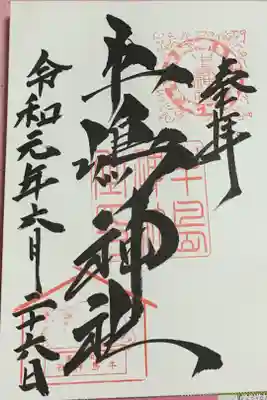 奉拝
牛嶋神社
令和元年六月二十六日